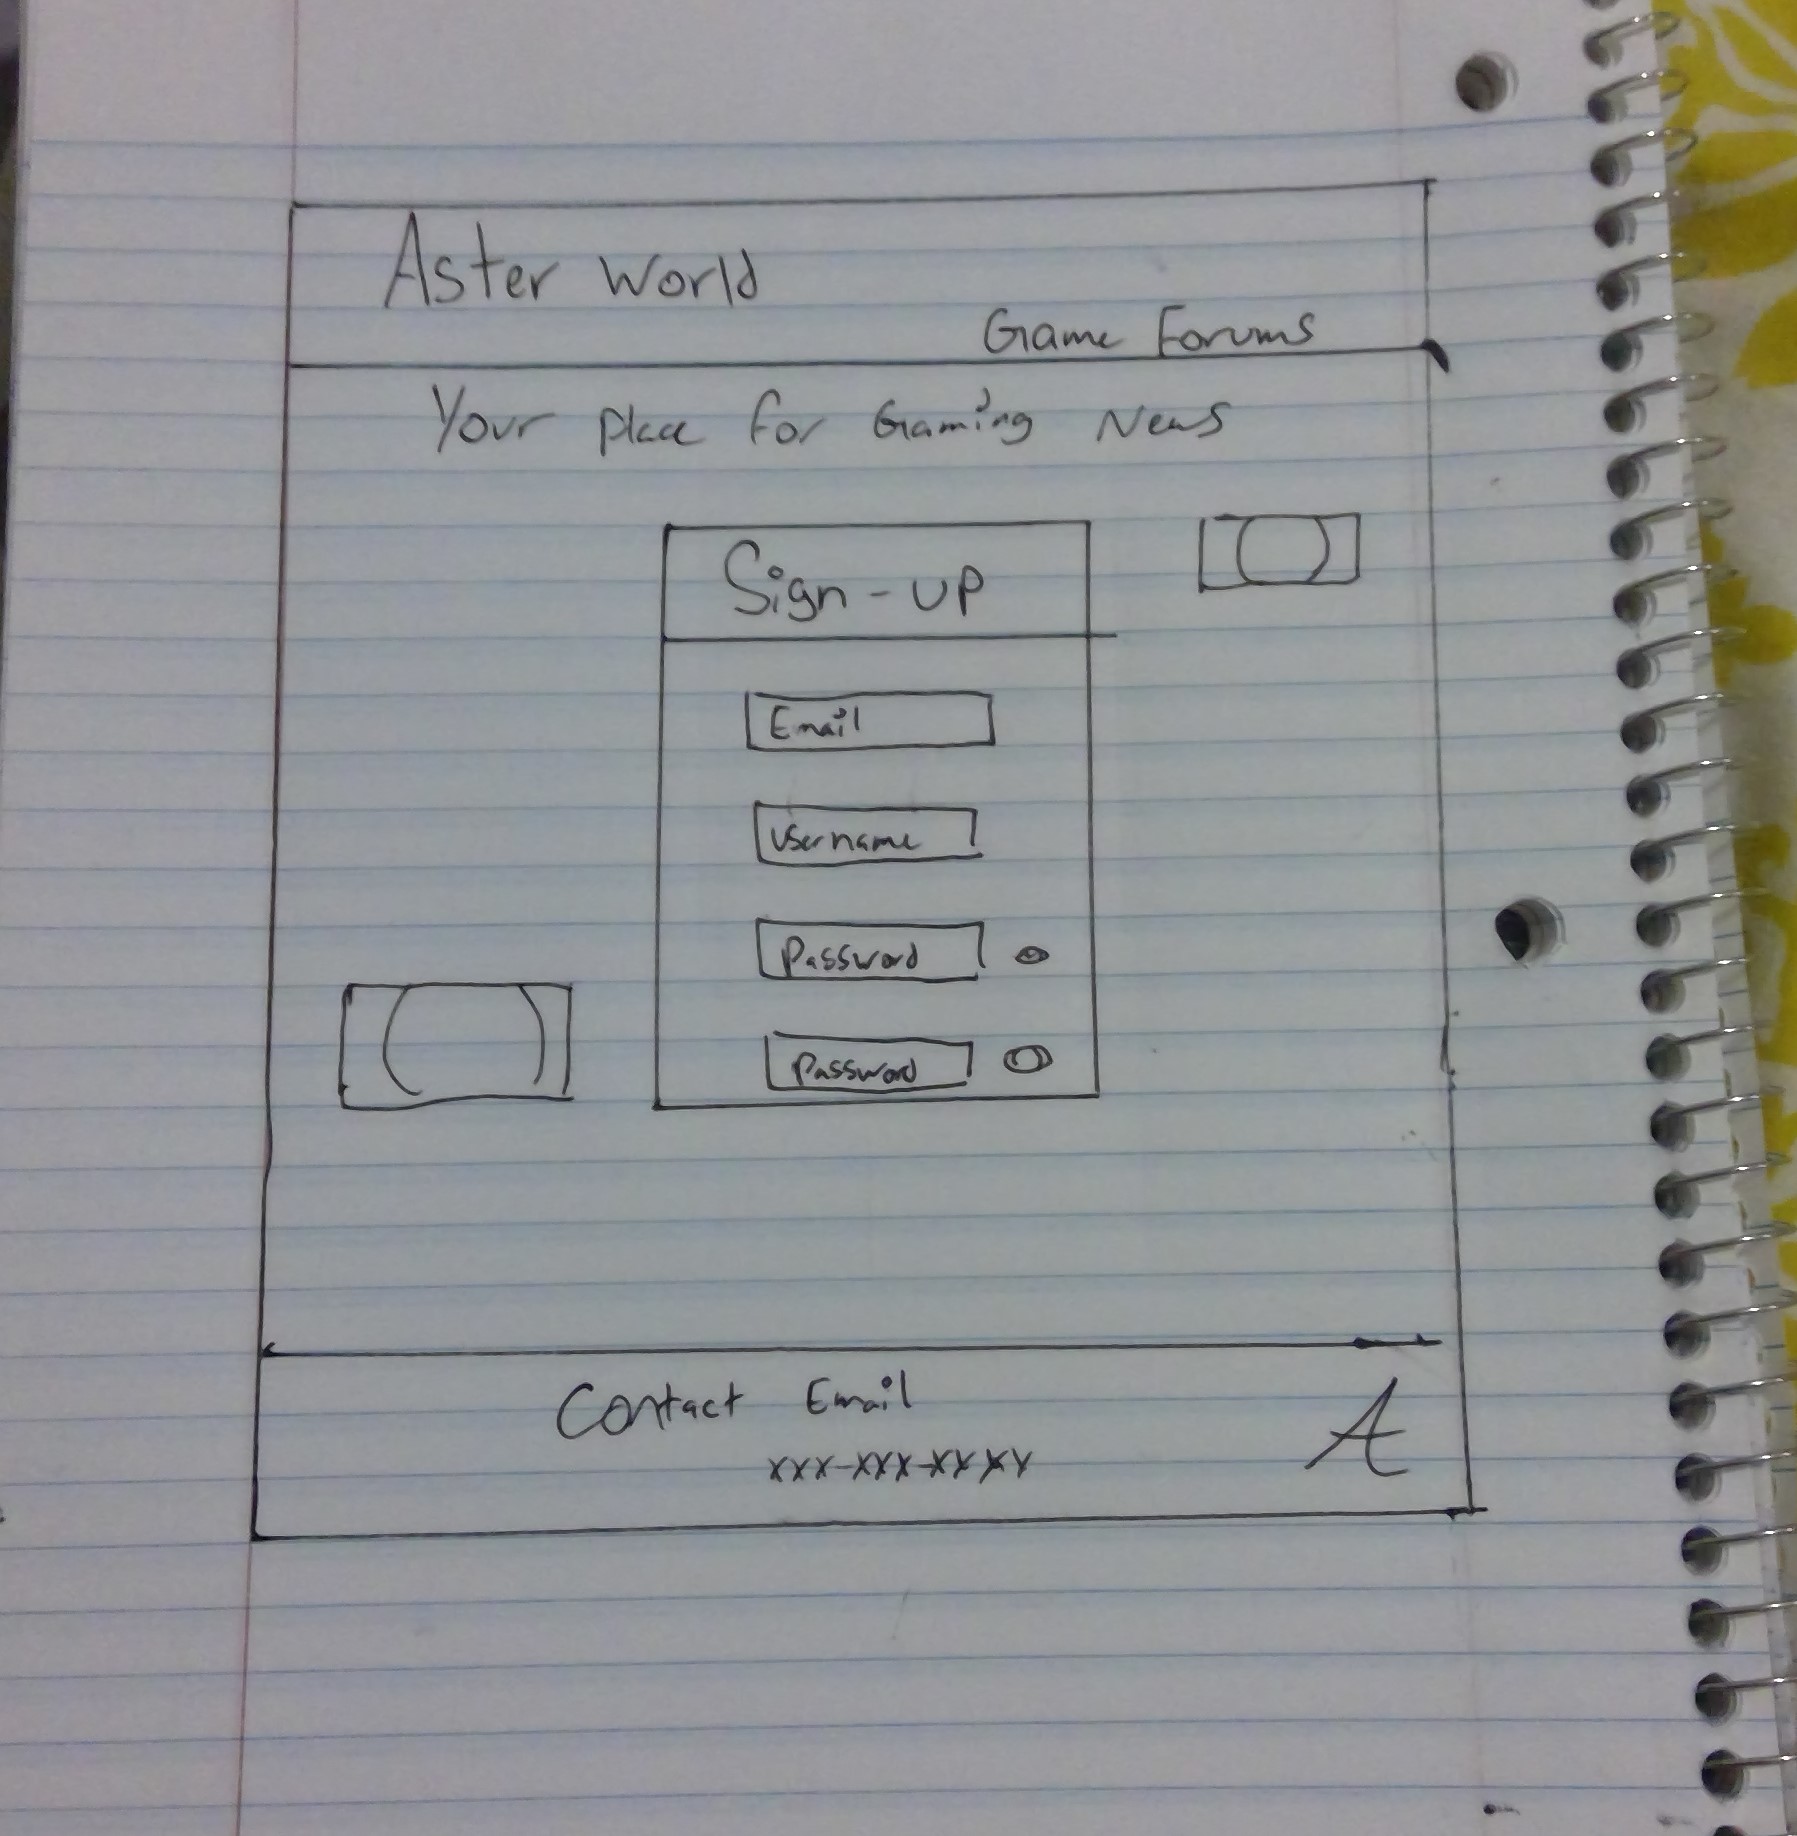 Aster World
Game Forums
Your place for Gaming News
Sign-up
Email
Username
Password
Password
Contact Email
xxx-xxx-xxxx
A